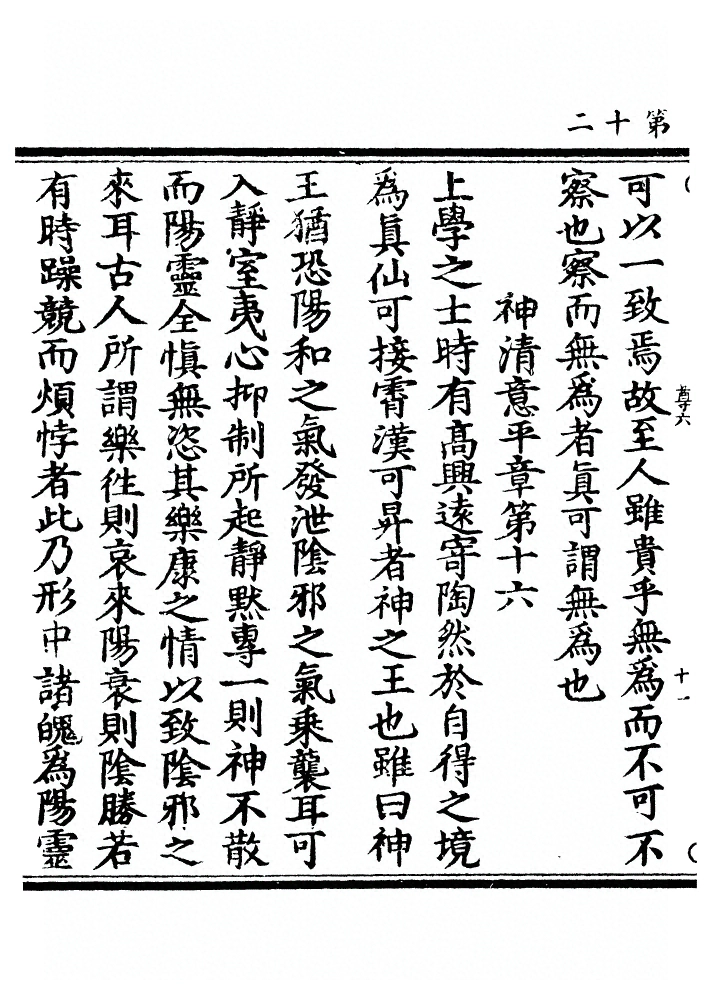 第十二
可以一致焉故至人雖貴乎無爲而不可不
察也察而無爲者眞可謂無爲也
神清意平章第十六
上學之士時有高興遠寄陶然於自得之境
爲眞仙可接霄漢可昇者神之王也雖曰神
王猶恐陽和之氣發泄陰邪之氣乘襲耳可
入靜室夷心抑制所起靜默專一則神不散
而陽靈全愼無恣其樂康之情以致陰邪之
來耳古人所謂樂徃則哀來陽衰則陰勝若
有時躁競而煩悖者此乃形中諸魄爲陽靈
尊六
十一